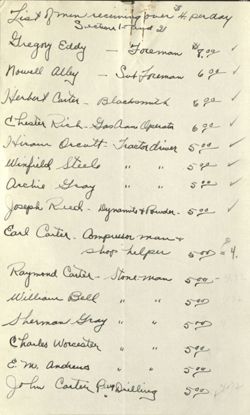 List of men receiving over $4 per day
Sections 15 and 21
Gregory Eddy - Foreman $8.00 ✓
Nowell Alley - Sub Foreman 6.00 ✓
Herbert Carter - Blacksmith 6.00 ✓
Chester Rich - Gas Ram Operator 6.00 ✓
Hiram Orcutt - Tractor driver 5.00 ✓
Winfield Steele " " 5.00 ✓
Archie Gray " " 5.00 ✓
Joseph Reed - Dynamite & Powder - 5.00 ✓
Earl Carter - Compressor man &
shop helper 5.00 = 4.
Raymond Carter - Stone man 5.00
William Bell " " 5.00
Sherman Gray " " 5.00
Charles Worcester " " 5.00
E. M. Andrews " " 5.00
John Carter Drilling 5.00